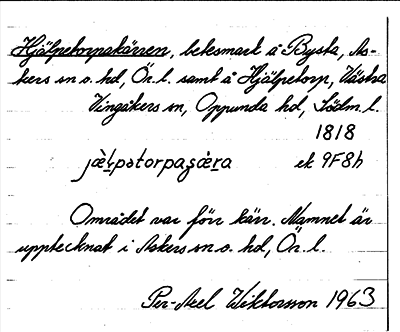 Hjälpetorpakärren, betesmark å Bysta, As-
kers sn o. hd, Ör. l. samt å Hjälpetorp, Västra
Vingåkers sn, Oppunda hd, Södm. l.
1818
jæ̀lpətorpaʂæ̀ra ek 9F8h
Området var förr kärr. Namnet är
upptecknat i Askers sn o. hd, Ör. l.
Per-Axel Wiktorsson 1963